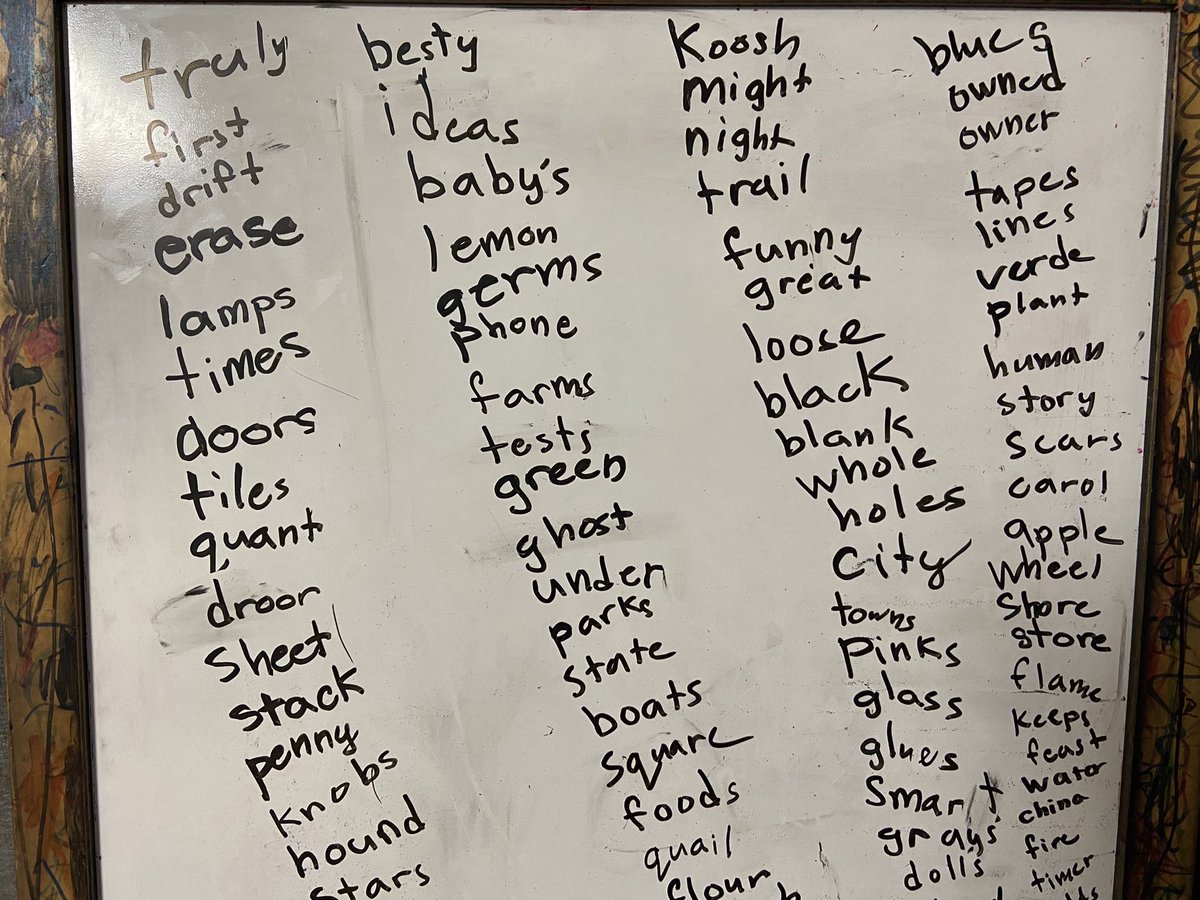 truly
first
drift
erase
lamps
times
doors
tiles
quant
droor
sheet
stack
penny
knobs
hound
stars
besty
ideas
baby's
lemon
germs
phone
farms
tests
green
ghost
under
parks
state
boats
square
foods
quail
flour
Koosh
might
night
trail
funny
great
loose
black
blank
whole
holes
city
towns
pinks
glass
glues
smart
grays
dolls
blues
owned
owner
tapes
lines
verde
plant
human
story
scars
carol
apple
wheel
shore
store
flame
keeps
feast
water
china
fire
timer